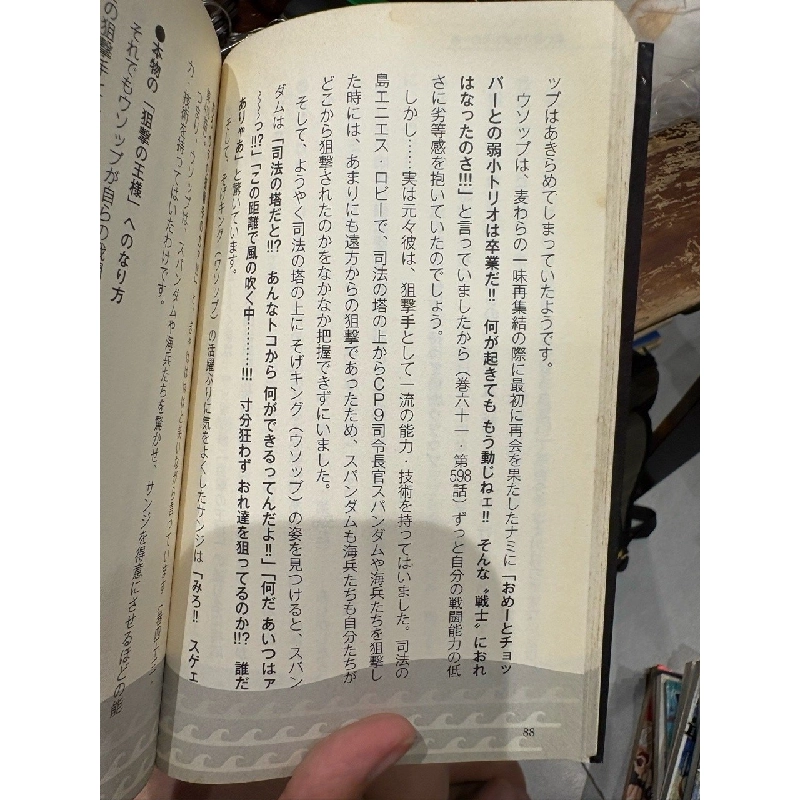 ップはあきらめてしまっていたようです。
ウソップは、麦わらの一味再集結の際に最初に再会を果たしたナミに「おめーとチョッ
パーとの弱小トリオは卒業だ!! 何が起きても もう動じねェ!! そんな〝戦士〟におれ
はなったのさ!!!」と言っていましたから（巻六十一・第598話）ずっと自分の戦闘能力の低
さに劣等感を抱いていたのでしょう。
しかし……実は元々彼は、狙撃手として一流の能力、技術を持ってはいました。司法の
島エニエス・ロビーで、司法の塔の上からCP9司令長官スパンダムや海兵たちを狙撃し
た時には、あまりにも遠方からの狙撃であったため、スパンダムも海兵たちも自分たちが
どこから狙撃されたのかをなかなか把握できずにいました。
そして、ようやく司法の塔の上に そげキング（ウソップ）の姿を見つけると、スパン
ダムは「司法の塔だと!!? あんなトコから 何ができるってんだよ!!」「何だ あいつはァ
〜〜〜っ!?」「この距離で風の吹く中………!!! 寸分狂わず おれ達を狙ってるのか!!? 誰だ
ありゃあ」と驚いています。
そして、そげキング（ウソップ）の活躍ぶりに気をよくしたサンジは「みろ!! スゲェ
スパンダムや海兵たちを驚かせ、サンジを得意にさせるほどの能
技術を持ってはいたわけです。
●本物の「狙撃の王様」へのなり方
それでもウソップが自らの戦
の狙撃手
88